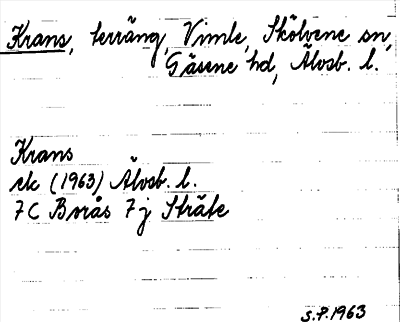 Krans, terräng, Vimle, Skölvene sn,
Gäsene hd, Älvsb. l.
Krans
ek (1963) Älvsb. l.
7C Borås 7j Stråte
S.P. 1963